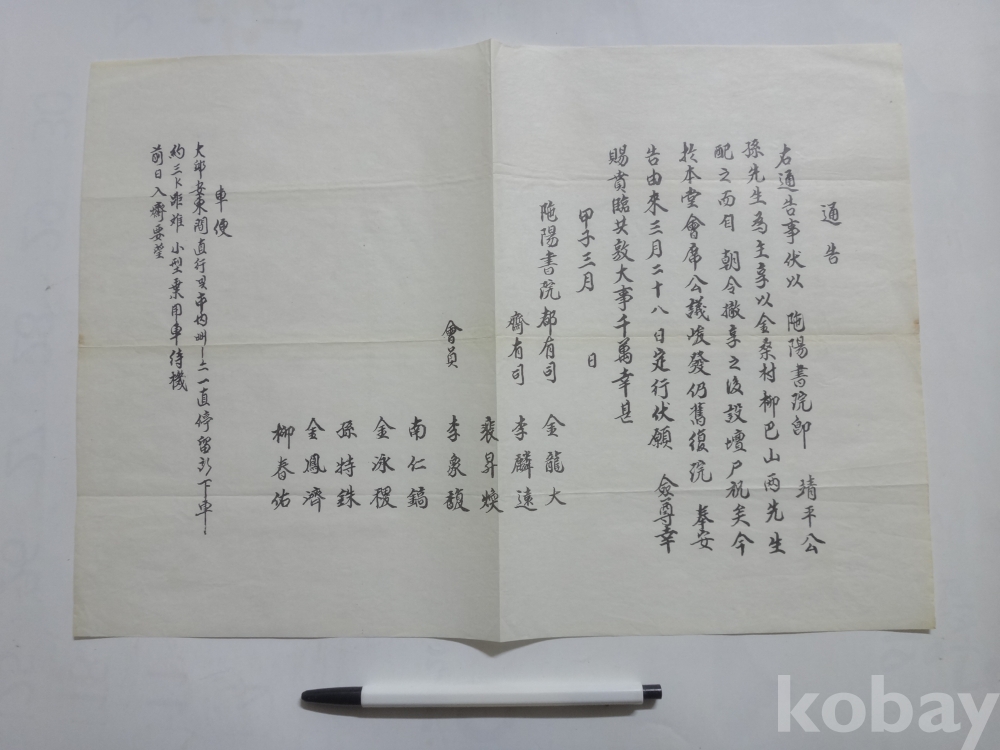 通告
右通告事伏以 陁陽書院卽 靖平公
孫先生為主享以金桑村柳巴山兩先生
配之而自 朝令撤享之後設壇尸祝矣今
於本堂會席公議峻發仍舊復院 奉安
告由來三月二十八日定行伏願 僉尊幸
賜賁臨共敦大事千萬幸甚
甲子三月 日
陁陽書院都有司 金龍大
齊有司 李麟遠
裵昇煥
會員 李象馥
南仁鎬
金泳稷
孫特銖
金鳳濟
柳春佑
車便
大邱安東間直行 停留 下車
約三K 距離 小型乗用車待機
前日入齊要望
kobay